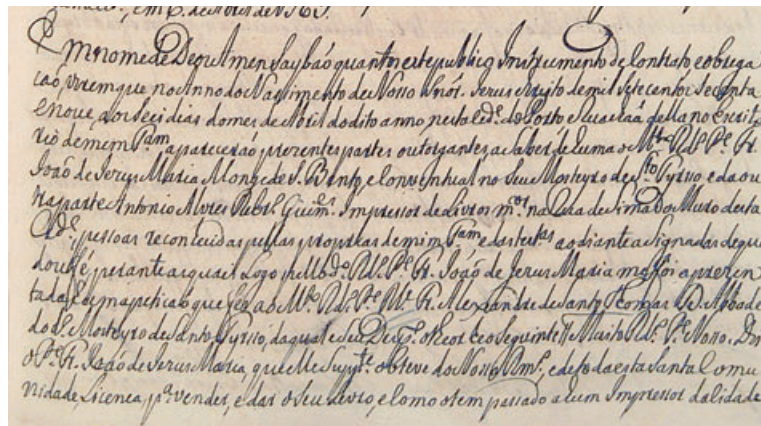 em 6. de Abril de 1769.
Em nome de Deos Amen Saybão quantos este publico Instrumento de Contrato e obriga
cão virem que no Anno do Nascimento de Nosso Snõr. Jezus Christo de mil e sete centos secenta
e nove aos seis dias do mes de Abril do dito anno nesta Cide. do Porto e Rua
rio de mim Tam. aparecerão prezentes partes outorgantes a Saber de huma o Mto. Rdo. Pe. Fr.
João de Jezus Maria Monge de S. Bento, e conventual no Seu Mosteyro de Sto Tyrsso e da ou
tra parte Antonio Alvres Ribro. Guims. Impressor de Livros mor. na Rua de Sima do Muro desta
Cide. pessoas reconhecidas pellas proprias de mim Tam e das testas ao diante asignadas de que
dou fé perante as quais Logo pello do. Rdo. Pe. Fr. João de Jezus Maria me foi aprezen
tada huma peticaõ que fez ao Mto. Rdo. Pe. Me. Fr. Alexandre de Santo Thomas D. Abbade
do do. Mosteyro de Santo Tyrsso, da qual e seu Desp. o theor he o Seguinte // Muito Rdo. Pe. Nosso. Diz
o Pe. Fr. João de Jezus Maria, que elle Suppte. obteve do Nosso Rmo., e de toda esta Santa Comu
nidade, Licenca, pa. vender, e dar o Seu Livro, e como o tem passado a hum Impressor da Cidade